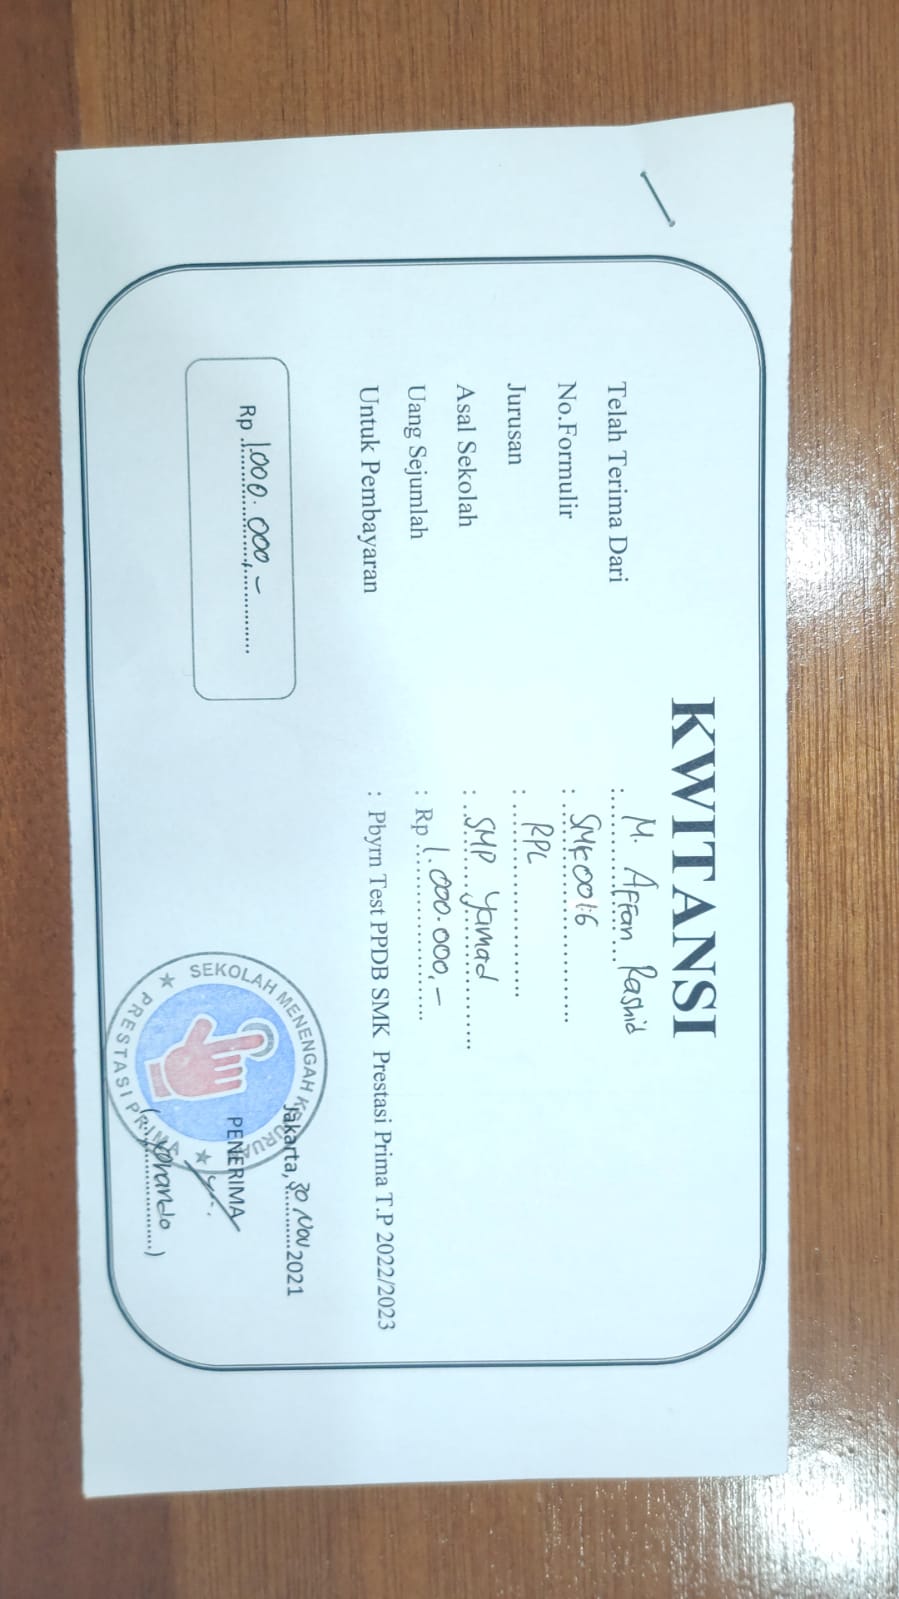 KWITANSI
Telah Terima Dari : M. Affan Rashid
No.Formulir : SMK0016
Jurusan : RPL
Asal Sekolah : SMP Yamad
Uang Sejumlah : Rp 1.000.000,-
Untuk Pembayaran : Pbyrn Test PPDB SMK Prestasi Prima T.P 2022/2023
Rp 1.000.000,-
Jakarta, 30 Nov 2021
PENERIMA
SEKOLAH MENENGAH KEJURUAN
PRESTASI PRIMA